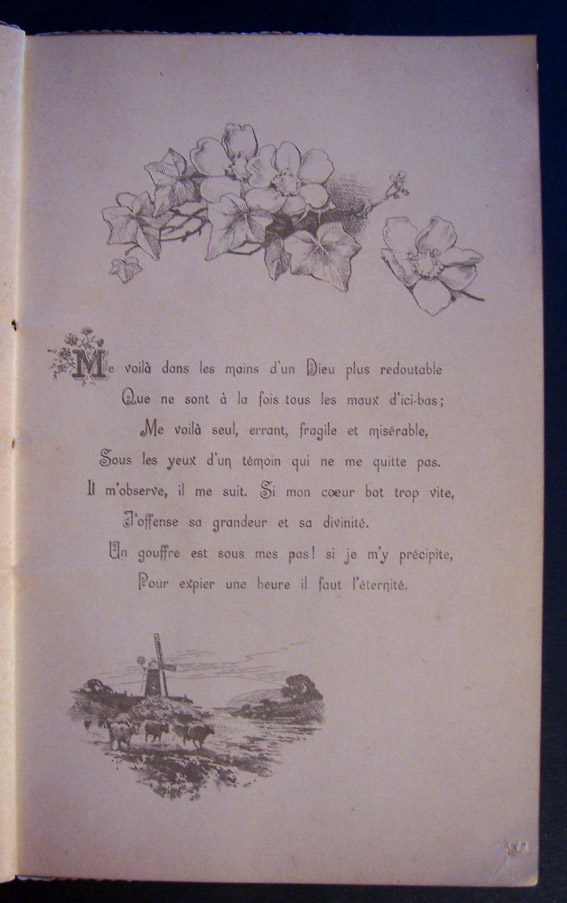 Me voilà dans les mains d'un Dieu plus redoutable
Que ne sont à la fois tous les maux d'ici-bas;
Me voilà seul, errant, fragile et misérable,
Sous les yeux d'un témoin qui ne me quitte pas.
Il m'observe, il me suit. Si mon cœur bat trop vite,
J'offense sa grandeur et sa divinité.
Un gouffre est sous mes pas! si je m'y précipite,
Pour expier une heure il faut l'éternité.